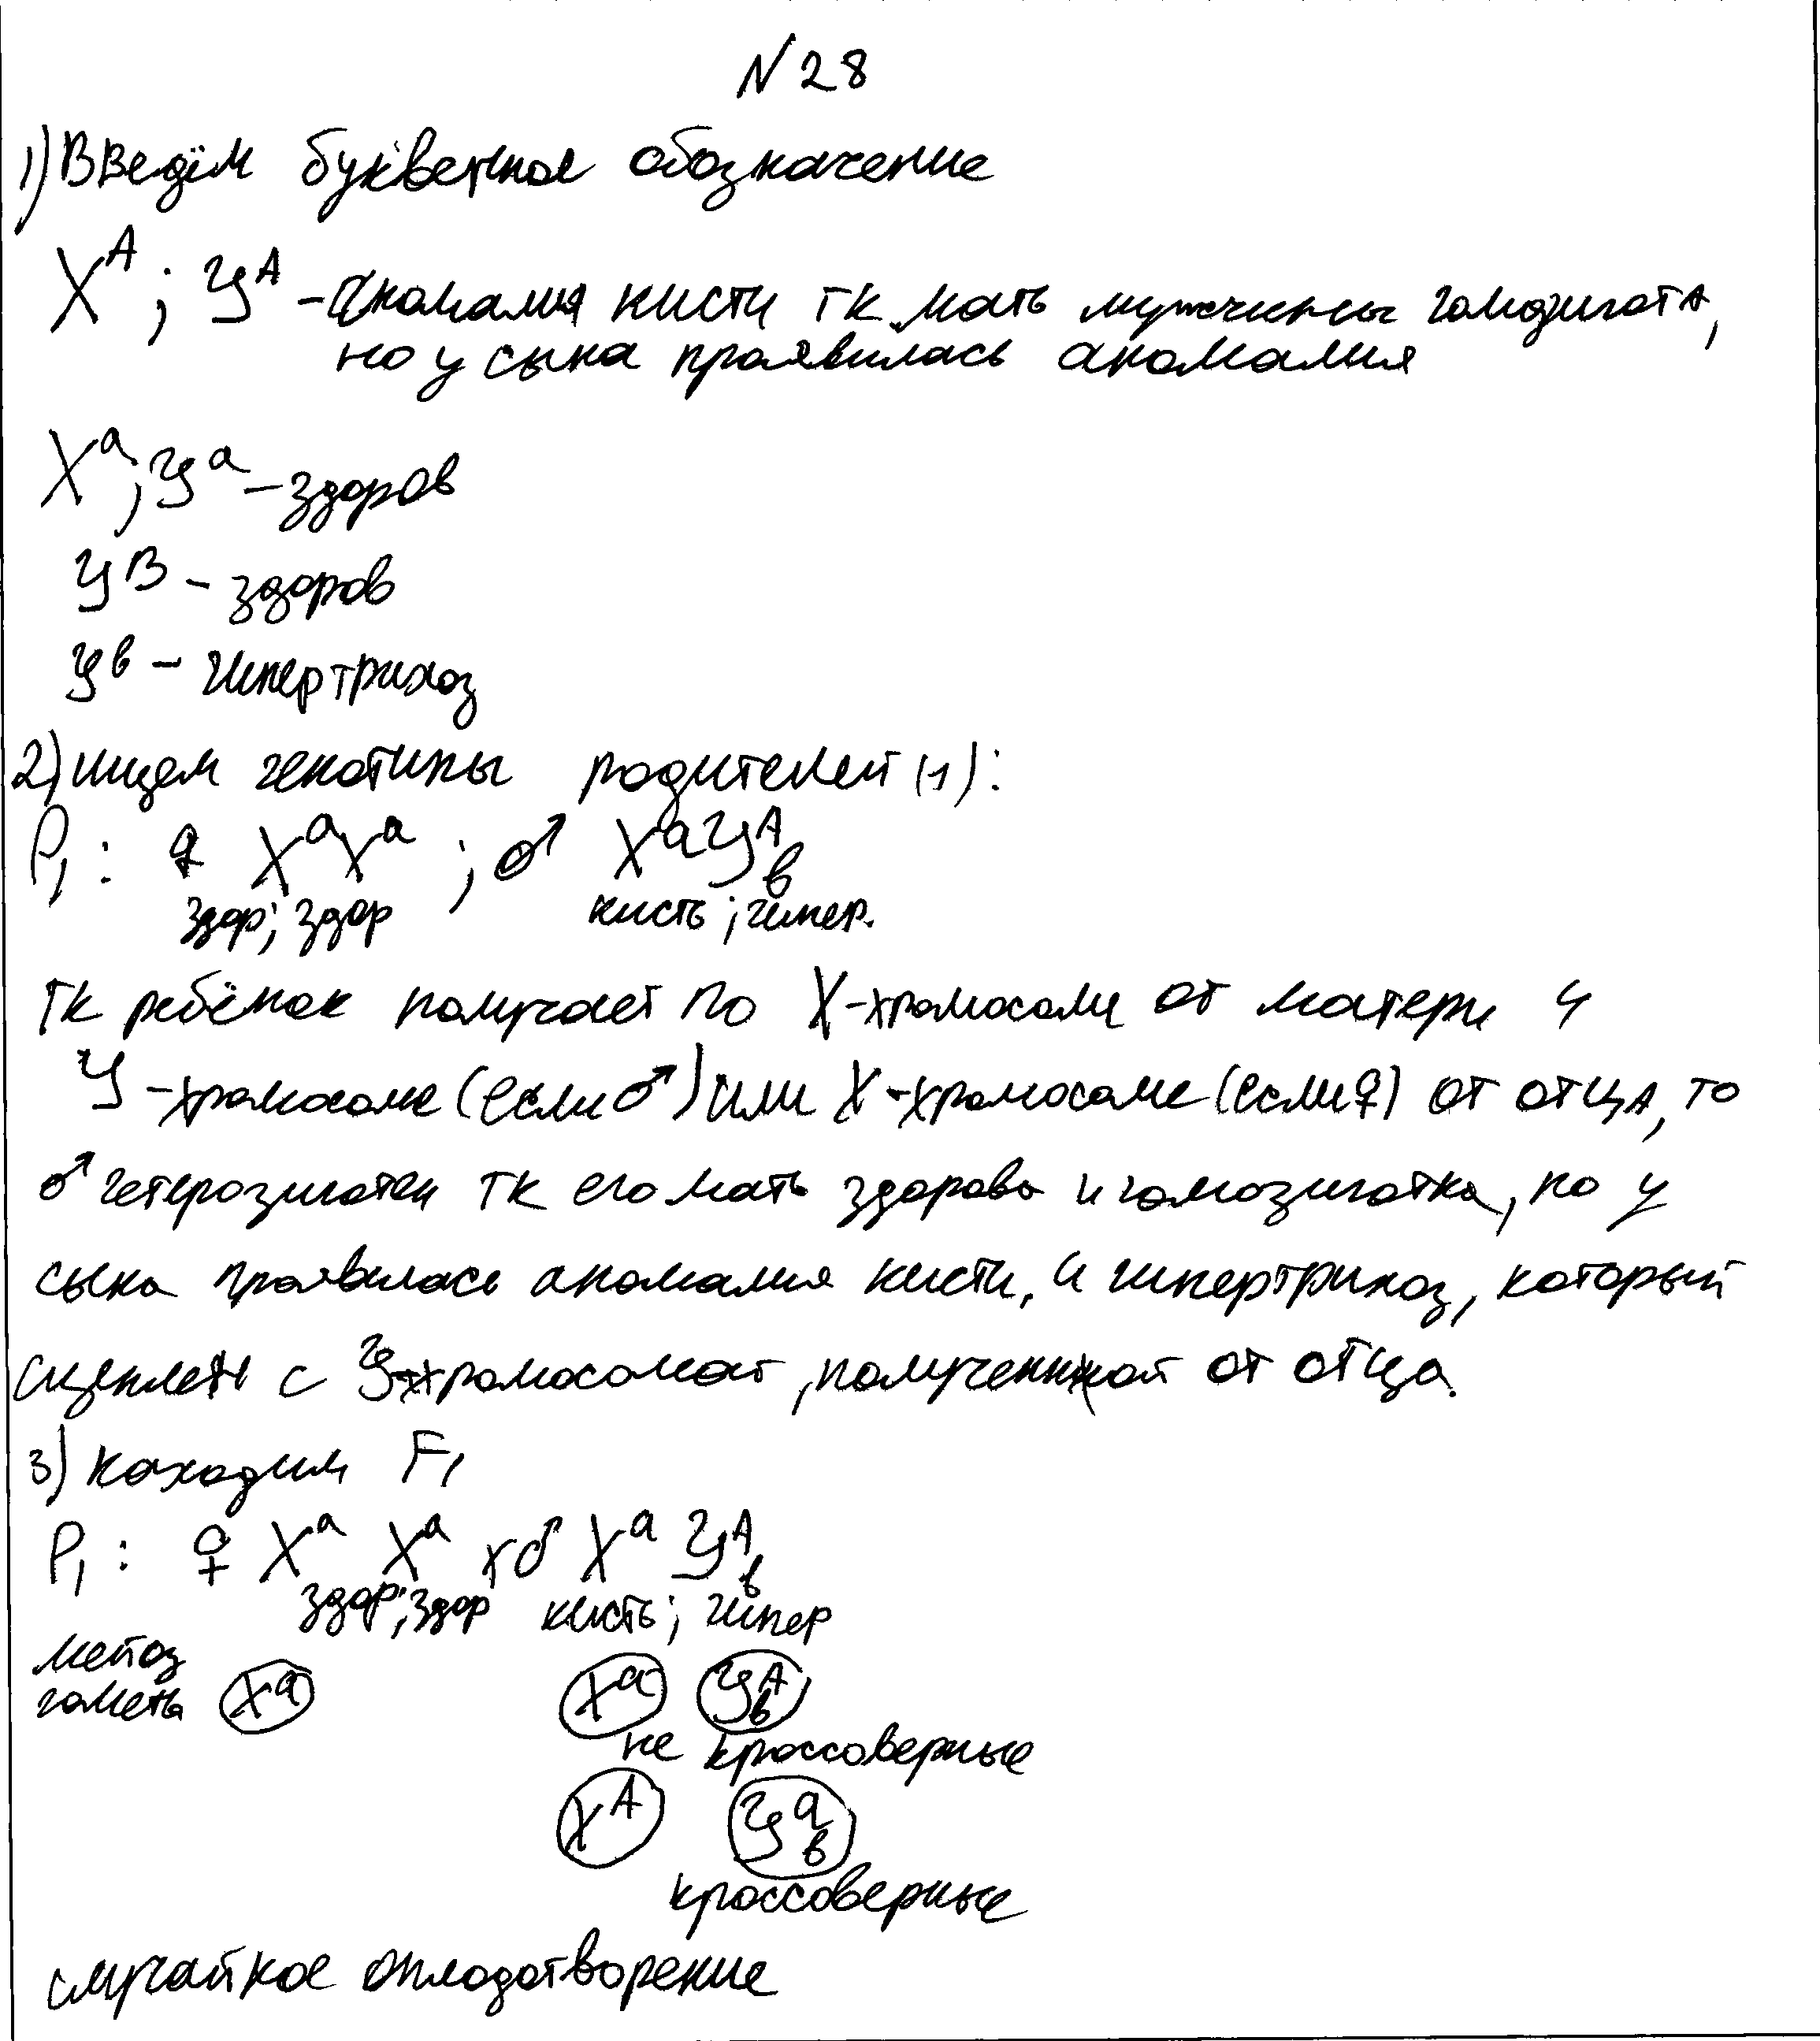 N 28
1) Введём буквенное обозначение
X^A ; У^A – Аномалия кисти тк мать мужчины гомозигота,
но у сына проявилась аномалия
X^a ; У^a – здоров
У^B – здоров
У^в – гипертрихоз
2) ищем генотипы родителей (1):
P₁ : ♀ X^a X^a ; ♂ X^a У^A_в
здор; здор кисть ; гипер.
тк ребёнок получает по X-хромосоме от матери и
У-хромосоме (если ♂) или X-хромосоме (если ♀) от отца, то
♂ гетерозиготен тк его мать здорова и гомозиготна, но у
сына проявилась аномалия кисти, и гипертрихоз, который
сцеплен с У-хромосомой, полученной от отца.
3) находим F₁
P₁ : ♀ X^a X^a х ♂ X^a У^A_в
здор; здор кисть; гипер
мейоз
гаметы X^a X^a У^A_в
не кроссоверные
X^A У^a_в
кроссоверные
случайное оплодотворение